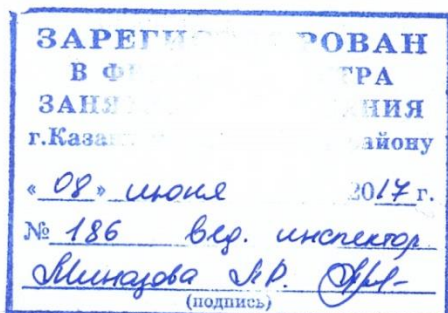 ЗАРЕГИ РОВАН
В Ф ТРА
ЗАНЯ АНИЯ
г.Каза айону
«08» июня 2017 г.
№ 186 вед. инспектор
Р.
(подпись)